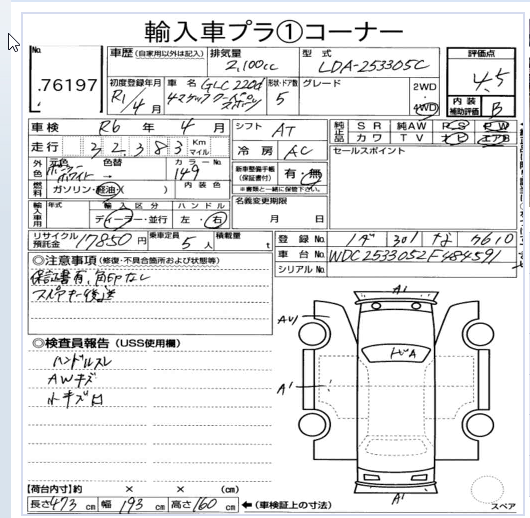 輸入車プラ①コーナー
No. 車歴 (自家用以外は記入) 排気量 2,100cc 型式 LDA-253305C 評価点 4.5
.76197
初度登録年月 R1/4月 車名 GLC220d 4マチック クーペ スポーツ 形状・ドア数 5 グレード 2WD 4WD 内装補助評価 B
車検 R6年 4月 シフト AT 純正品 SR 純AW PS PW
カワ TV ナビ エアB
走行 32,383 Km マイル 冷房 AC セールスポイント
外色 元色 ホワイト 色替 カラーNo. 149 新車整備手帳 (保証書付) 有・無
※書類と一緒に保管下さい。
燃料 ガソリン・軽油・( ) 内装色 名義変更期限
月 日
輸入車用 年式 輸入区分 ディーラー・並行 ハンドル 左・右
リサイクル預託金 17850円 乗車定員 5人 積載量 t 登録No.
車台No. WDC2533052F484591
シリアルNo.
◎注意事項 (修復・不具合箇所および状態等)
保証書有、
スペアキー後送
◎検査員報告 (USS使用欄)
ハンドルスレ
AWキズ
小キズ凹
A1
A1
A1
スペア
【荷台内寸】約 × × (cm)
長さ473cm 幅193cm 高さ160cm ←(車検証上の寸法)